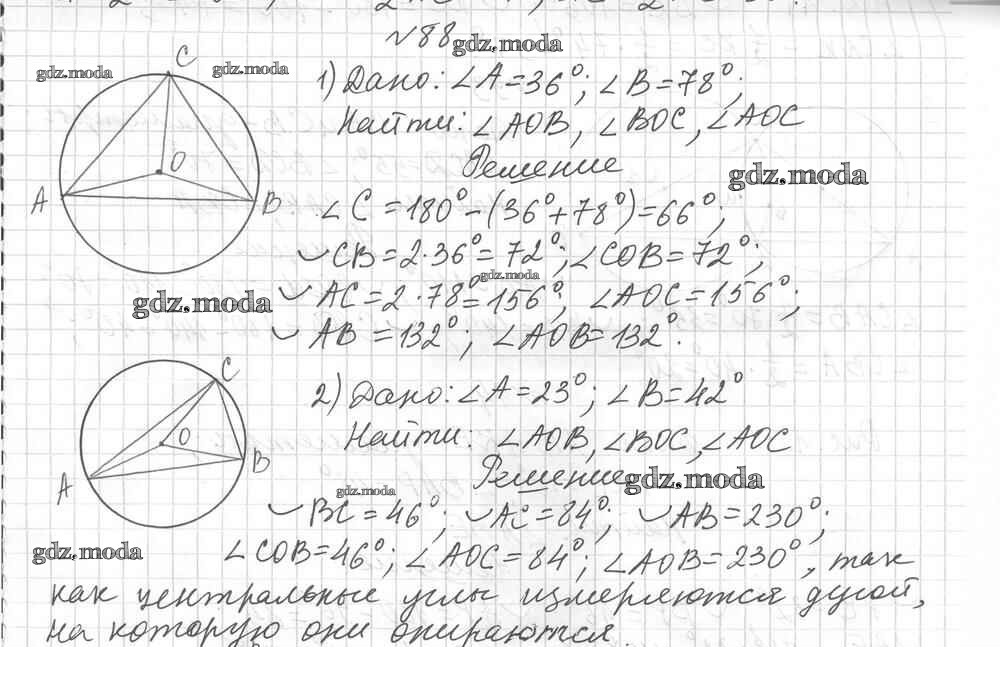 N88 gdz.moda
gdz.moda C gdz.moda
1) Дано: ∠A=36°; ∠B=78°;
Найти: ∠AOB, ∠BOC, ∠AOC
O
Решение
gdz.moda
A B
∠C=180°-(36°+78°)=66°;
◡CB=2·36°=72°; ∠COB=72°;
gdz.moda
gdz.moda
◡AC=2·78°=156°; ∠AOC=156°;
◡AB=132°; ∠AOB=132°.
C
2) Дано: ∠A=23°; ∠B=42°
Найти: ∠AOB, ∠BOC, ∠AOC
O
A B
Решение gdz.moda
gdz.moda
◡BC=46°; ◡AC=84°; ◡AB=230°;
gdz.moda
∠COB=46°; ∠AOC=84°; ∠AOB=230°, так
как центральные углы измеряются дугой,
на которую они опираются.